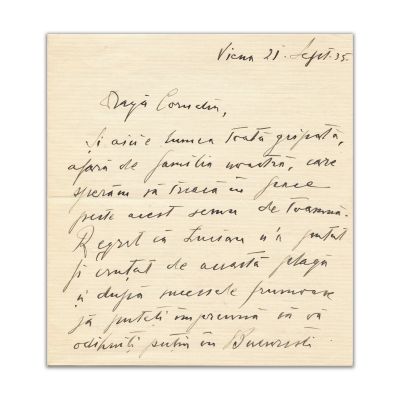 Viena 21. Sept. 35.
Dragă Corneliu,
Și aici e lumea toată gripată,
afară de familia noastră, care
sperăm să treacă în pace
peste acest semn de toamnă.
Regret că Lucian n'a putut
fi cruțat de această plagă
și după succesele frumoase
să puteți împreună să vă
odihniți puțin în București.